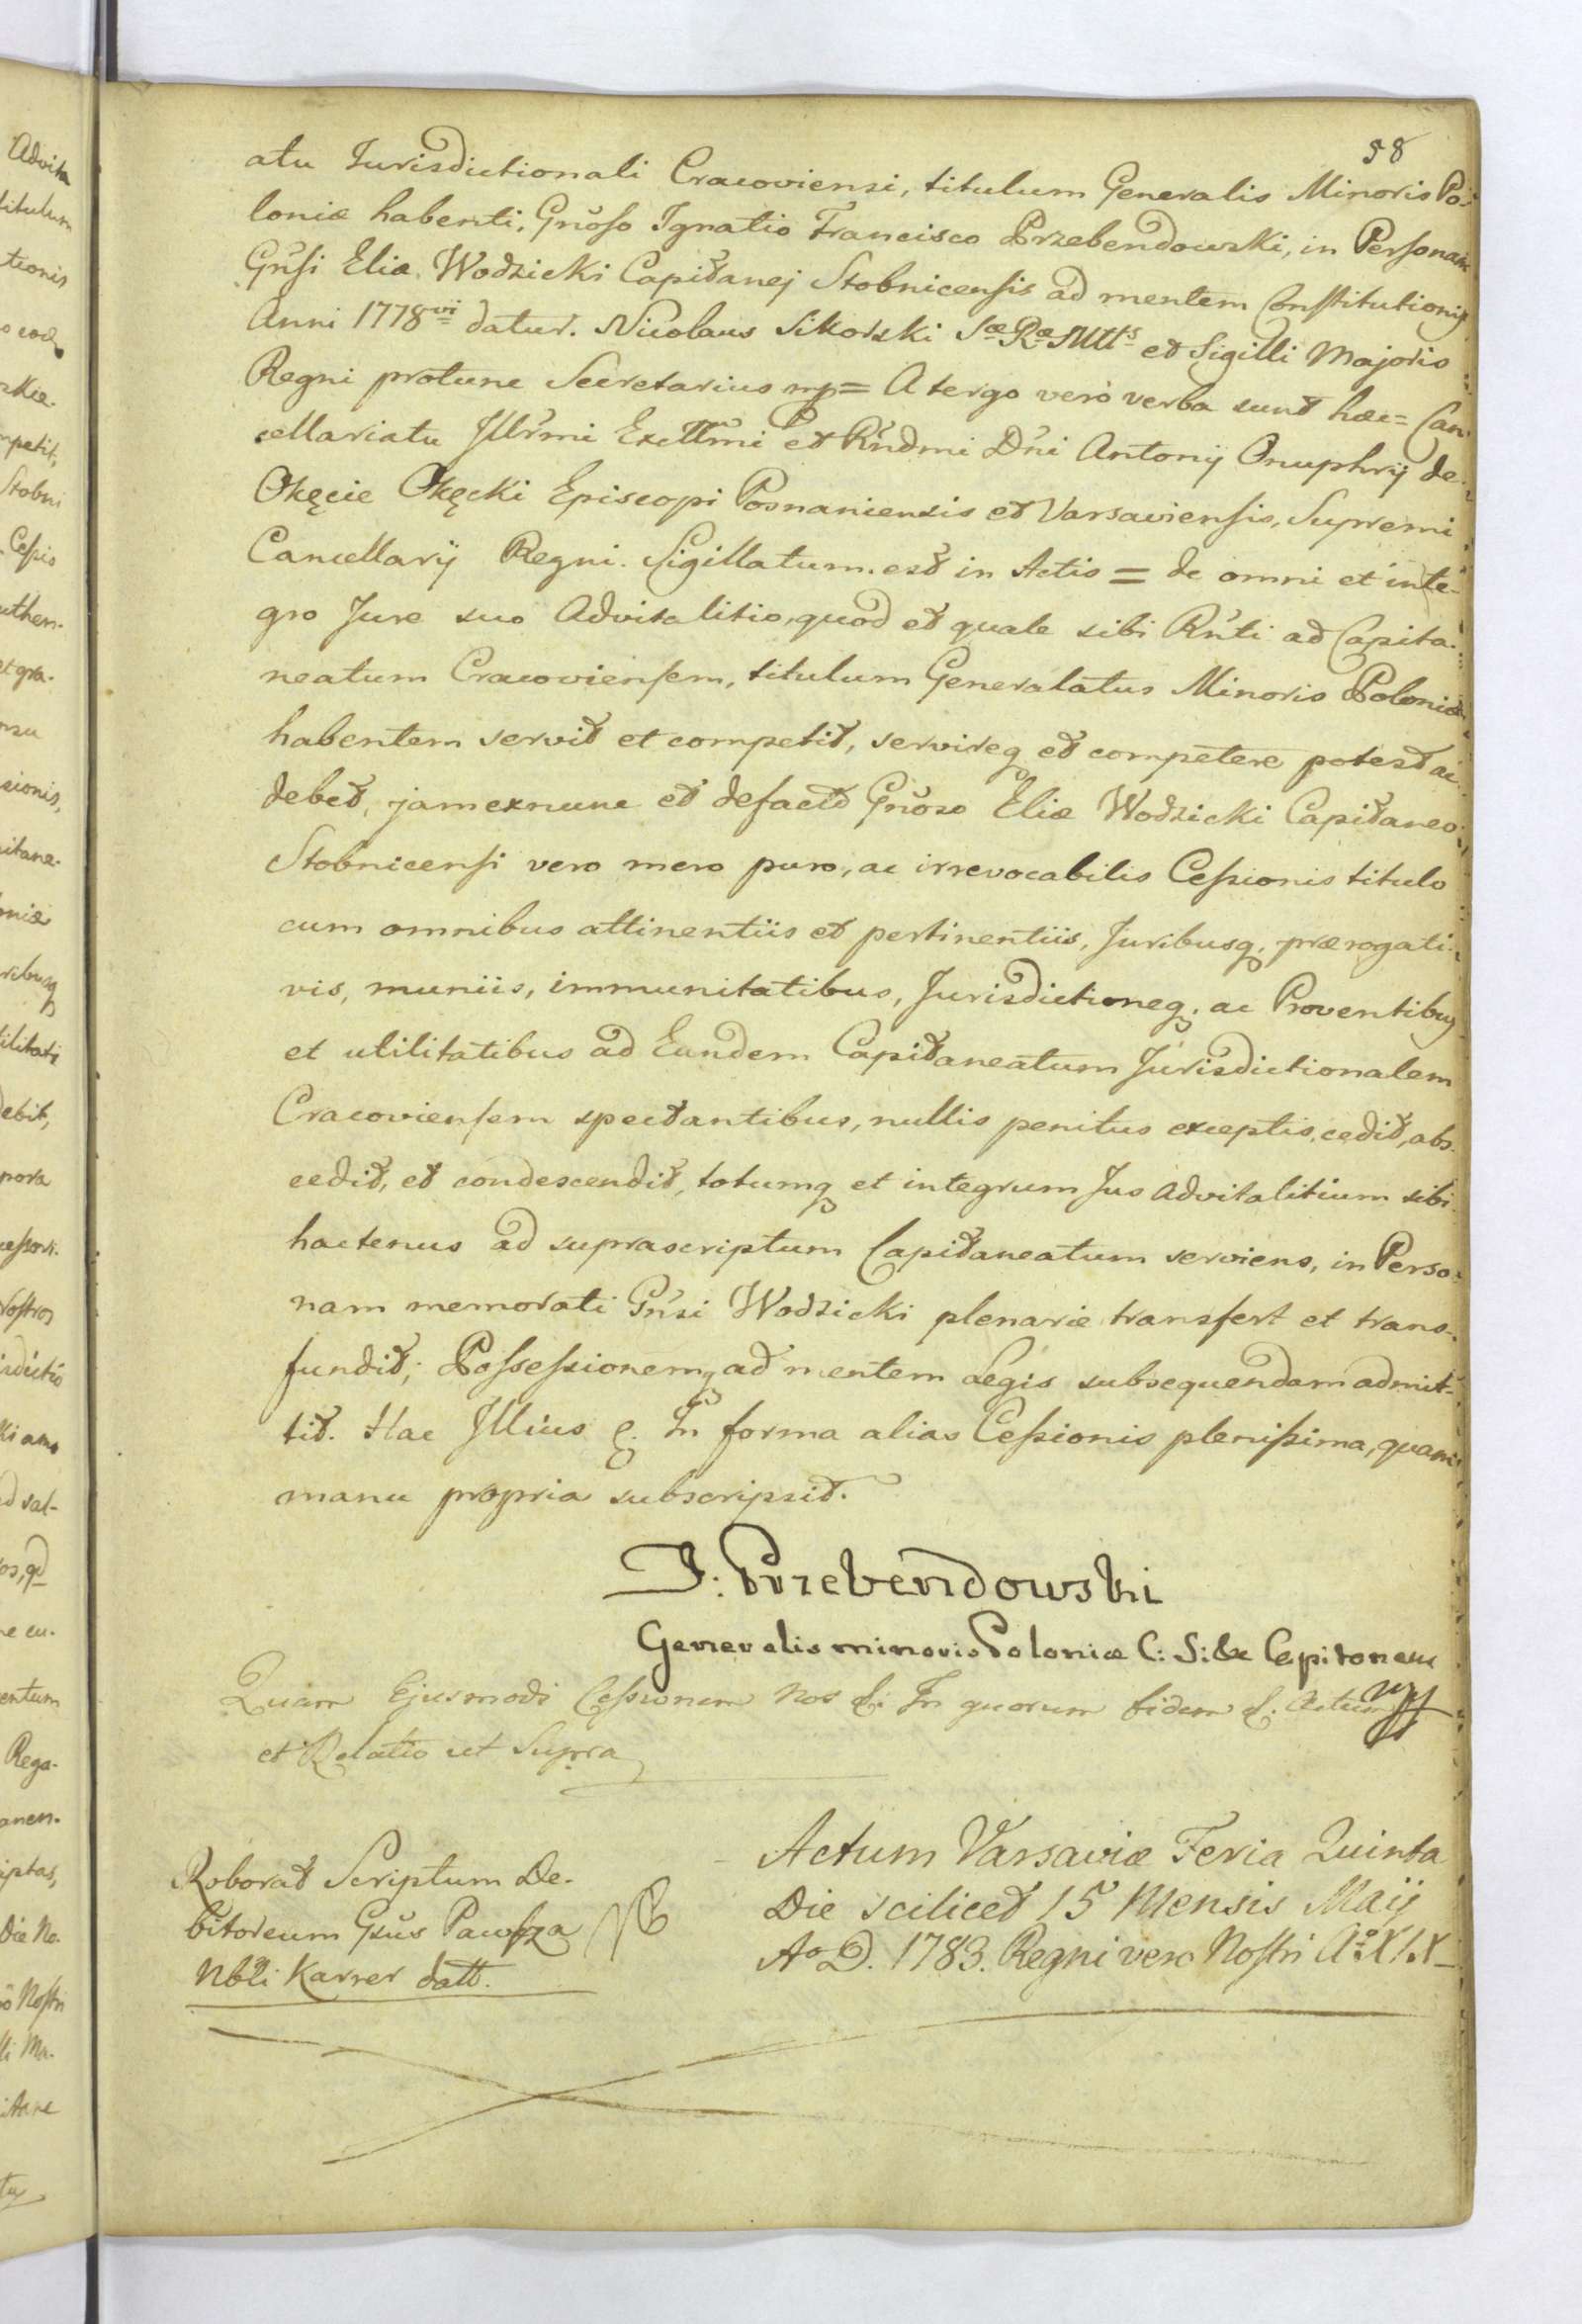 58
atu Jurisdictionali Cracoviensi, titulum Generalis Minoris Po-
loniæ habenti, Gnõso Ignatio Francisco Przebendowski, in Personam
Gñsi Eliæ Wodzicki Capitanej Stobnicensis ad mentem Constitutionis
Anni 1778vi datur. Nicolaus Sikorski Sæ Ræ Mttis et Sigilli Majoris
Regni protunc Secretarius mp = A tergo verò verba sunt hæc = Can-
cellariatu Illr̃mi Excllm̃i et Rñdmi Dñi Antonij Onuphrij de
Okęcie Okęcki Episcopi Posnaniensis et Varsaviensis, Supremi
Cancellarij Regni. Sigillatum est in Actis = de omni et inte-
gro Jure suo Advitalitio, quod et quale sibi Rñti ad Capita-
neatum Cracoviensem, titulum Generalatus Minoris Poloniæ
habentem servit et competit, servireq et competere potest ac
debet, jam exnunc et defacto Gnõso Eliæ Wodzicki Capitaneo
Stobnicensi vero mero puro, ac irrevocabilis Cessionis titulo
cum omnibus attinentiis et pertinentiis, Juribusq, prærogati-
vis, muniis, immunitatibus, Jurisdictioneq, ac Proventibus
et utilitatibus ad Eundem Capitaneatum Jurisdictionalem
Cracoviensem spectantibus, nullis penitus exceptis, cedit, abs-
cedit, et condescendit, totumq et integrum Jus Advitalitium sibi
hactenus ad suprascriptum Capitaneatum serviens, in Perso-
nam memorati Gñsi Wodzicki plenarie transfert et trans-
fundit; Possessionemq ad mentem Legis subsequendam admit-
tit. Hac Illius &. In forma alias Cessionis plenissima, quam
manu propria subscripsit.
J: Przebendowski
Generalis minoris Poloniæ C: S: &c Capitaneus
mp
Quam Ejusmodi Cessionem Nos &. In quorum fidem &. Actum
et Relatio ut Supra
Roborat Scriptum De-
bitoreum Gsũs Pawsza
Nbĩli Karrer datt.
Actum Varsaviæ Feria Quinta
Die scilicet 15 Mensis Maij
Ao D. 1783. Regni vero Nostri Ao XIX